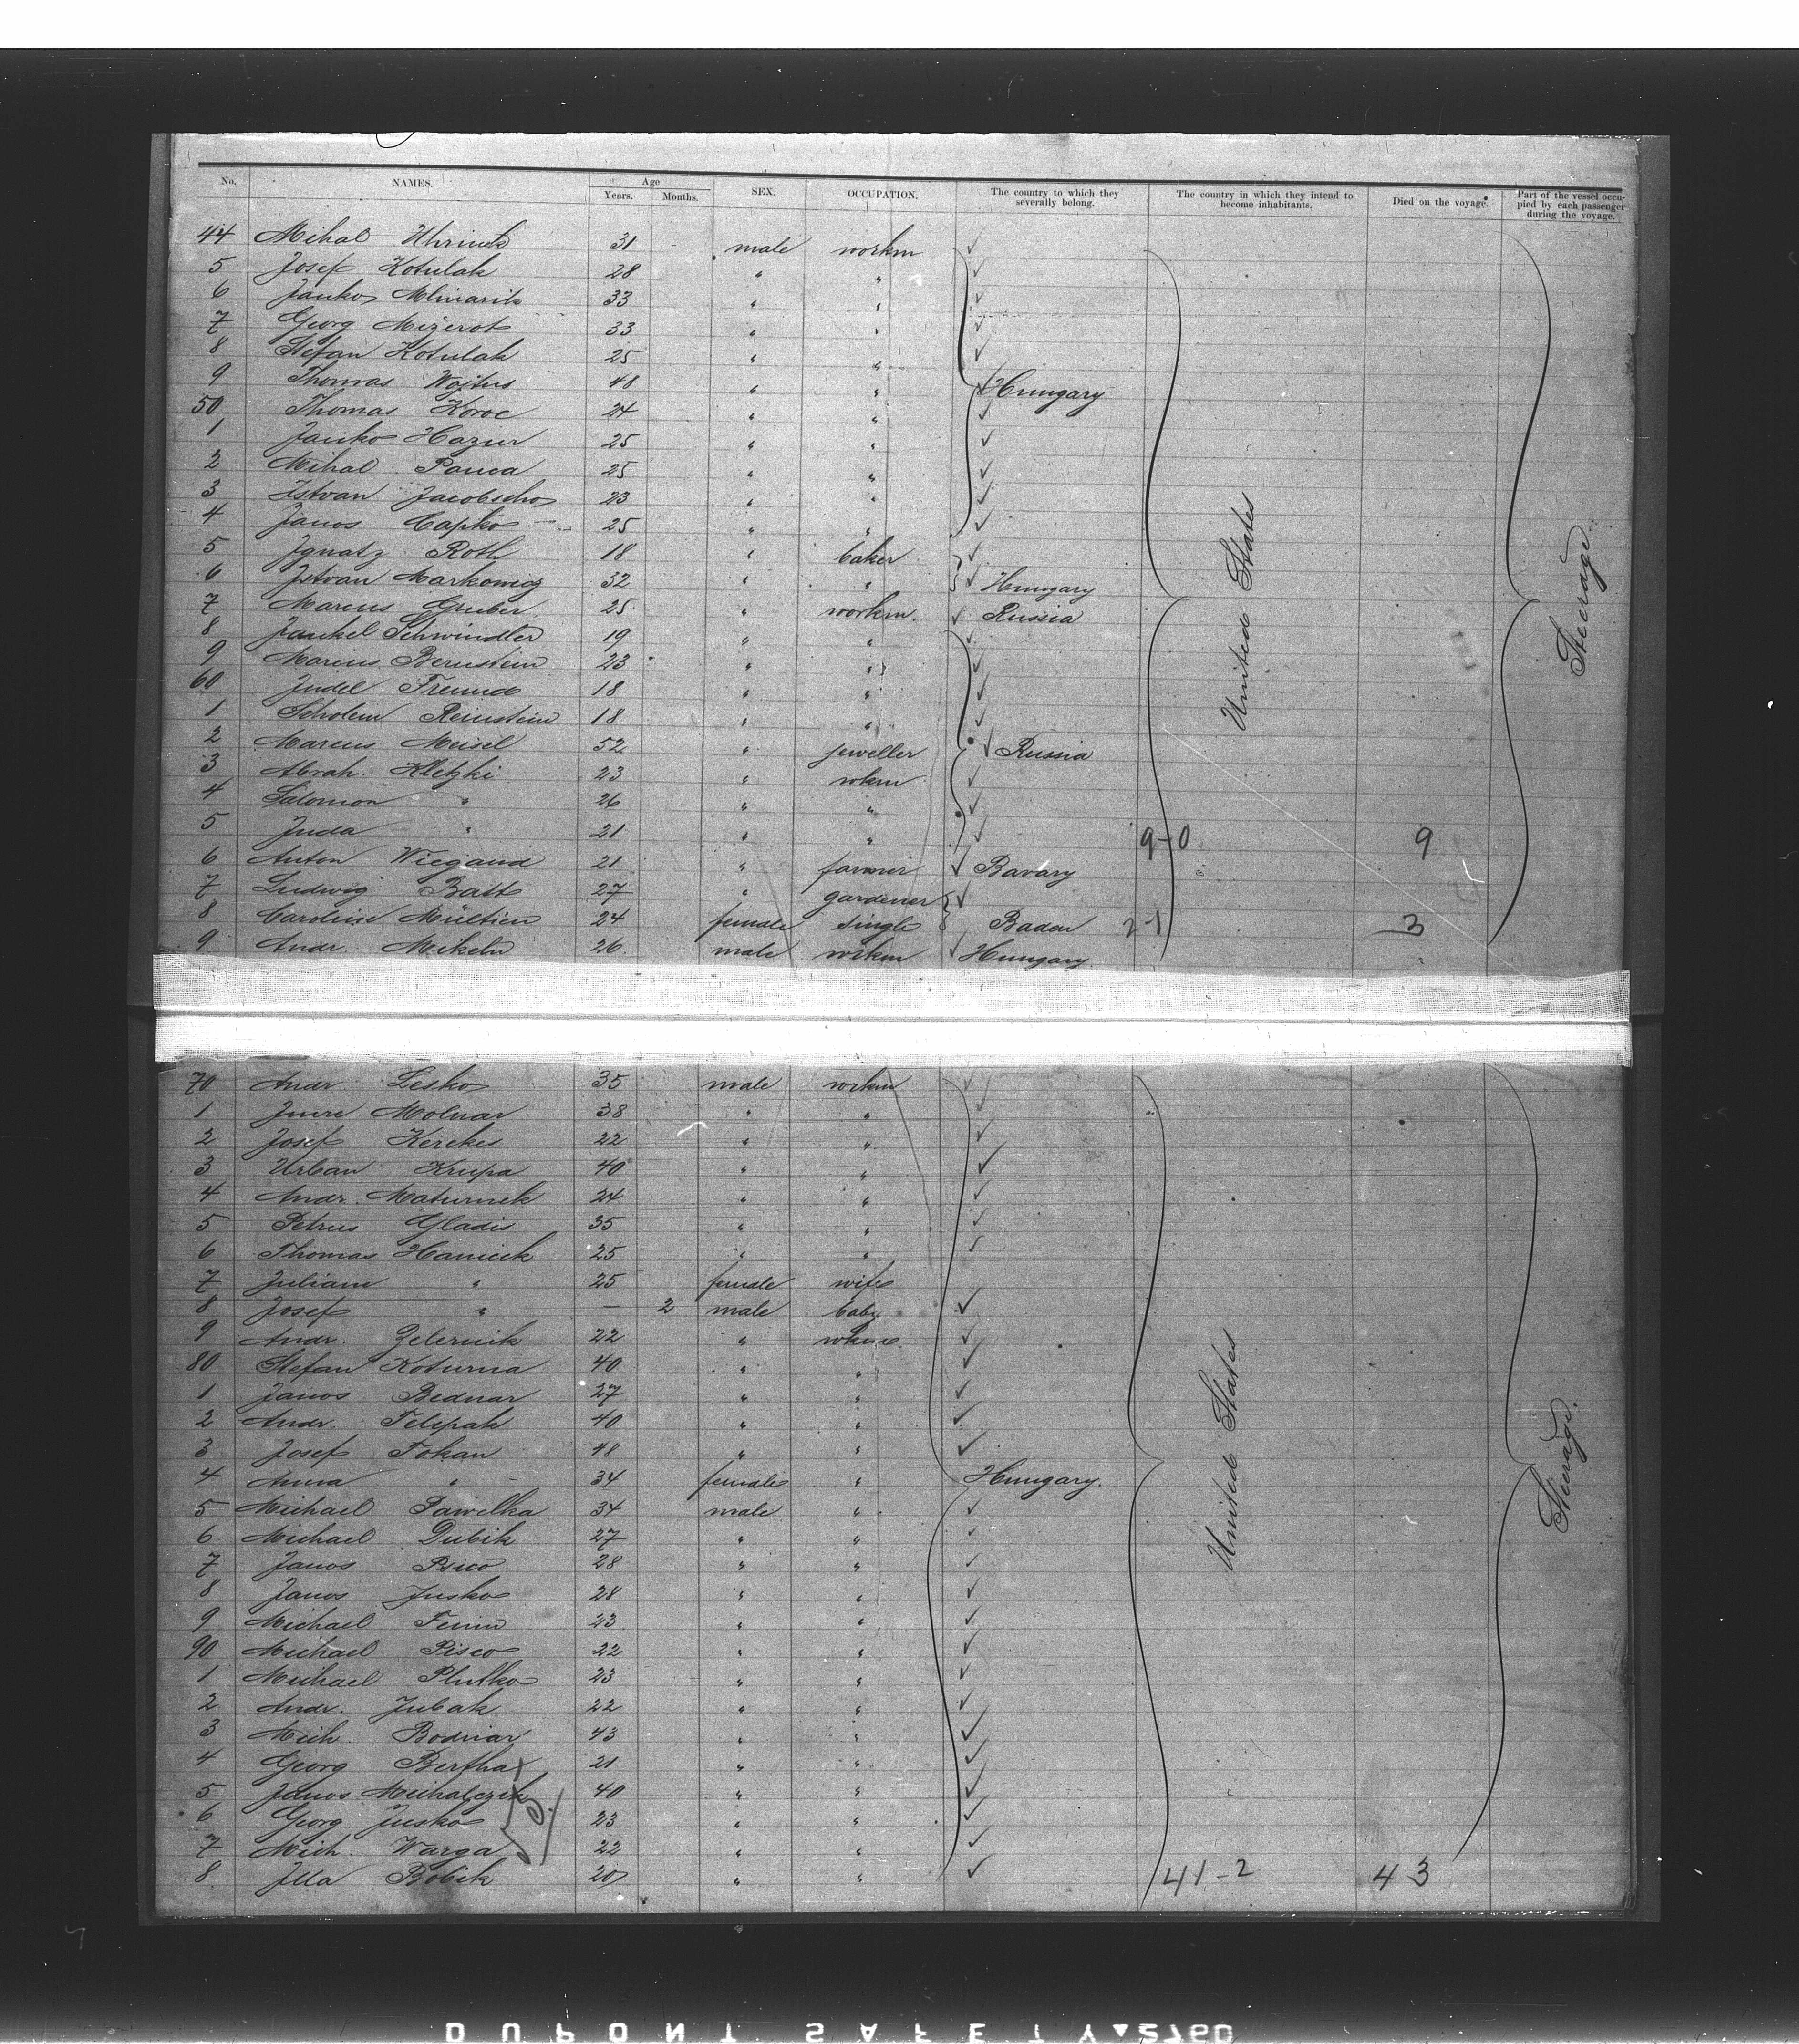 No. NAMES. Age Years. Months. SEX. OCCUPATION. The country to which they severally belong. The country in which they intend to become inhabitants. Died on the voyage. Part of the vessel occupied by each passenger during the voyage.
44 Mihal 31 male workm
5 Josef Kotulak 28 " "
6 Janko Mlinarik 33 " "
7 Georg Mizerot 33 " "
8 Stefan Kotulak 25 " "
9 Thomas Wojtus 48 " " Hungary
50 Thomas Koroc 24 " "
1 Janko Hazur 25 " "
2 Mihal Panca 25 " "
3 Istvan Jacobscho 23 " "
4 Janos Capko 25 " "
5 Ignatz Roth 18 " baker
6 Istvan Markowicz 32 " " Hungary
7 Marcus Gruber 25 " workm. Russia
8 Jankel Schwindler 19 " "
9 Marcus Bernstein 23 " "
60 Judel Freund 18 " "
1 Scholem Reinstein 18 " "
2 Marcus Meisel 52 " jeweller Russia
3 Abrah. Kletzki 23 " wkm
4 Salomon " 26 " "
5 Juda " 21 " " 9-0 9
6 Anton Wiegand 21 " farmer Bavary
7 Ludwig Batt 27 " gardener
8 Caroline 24 female single Baden 2-1 3
9 Andr. Mikeln 26 male wrkm Hungary
United States
Steerage.
70 Andr. Lesko 35 male wrkm
1 Imre Molnar 38 " "
2 Josef Kerekes 22 " "
3 Urban Krupa 40 " "
4 Andr. 24 " "
5 Petrus Gladis 35 " "
6 Thomas Hanicek 25 " "
7 Juliane " 25 female wife
8 Josef " — 2 male baby
9 Andr. Zelernik 22 "
80 Stefan Koturna 40 " "
1 Janos Bednar 27 " "
2 Andr. Telepak 40 " "
3 Josef Tokan 48 " "
4 Anna " 34 female " Hungary.
5 Michael Pawelka 34 male "
6 Michael Dubik 27 " "
7 Janos 28 " "
8 Janos Jusko 28 " "
9 Michael 23 " "
90 Michael Pisco 22 " "
1 Michael Plutko 23 " "
2 Andr. Jubak 22 " "
3 Mich. Bodnar 43 " "
4 Georg Bertha 21 " "
5 Janos Michalczik 40 " "
6 Georg Jusko 23 " "
7 Mich. Warga 22 " "
8 Illa Bobik 20 " " 41-2 43
United States
Steerage.
DUPONT SAFETY 2760